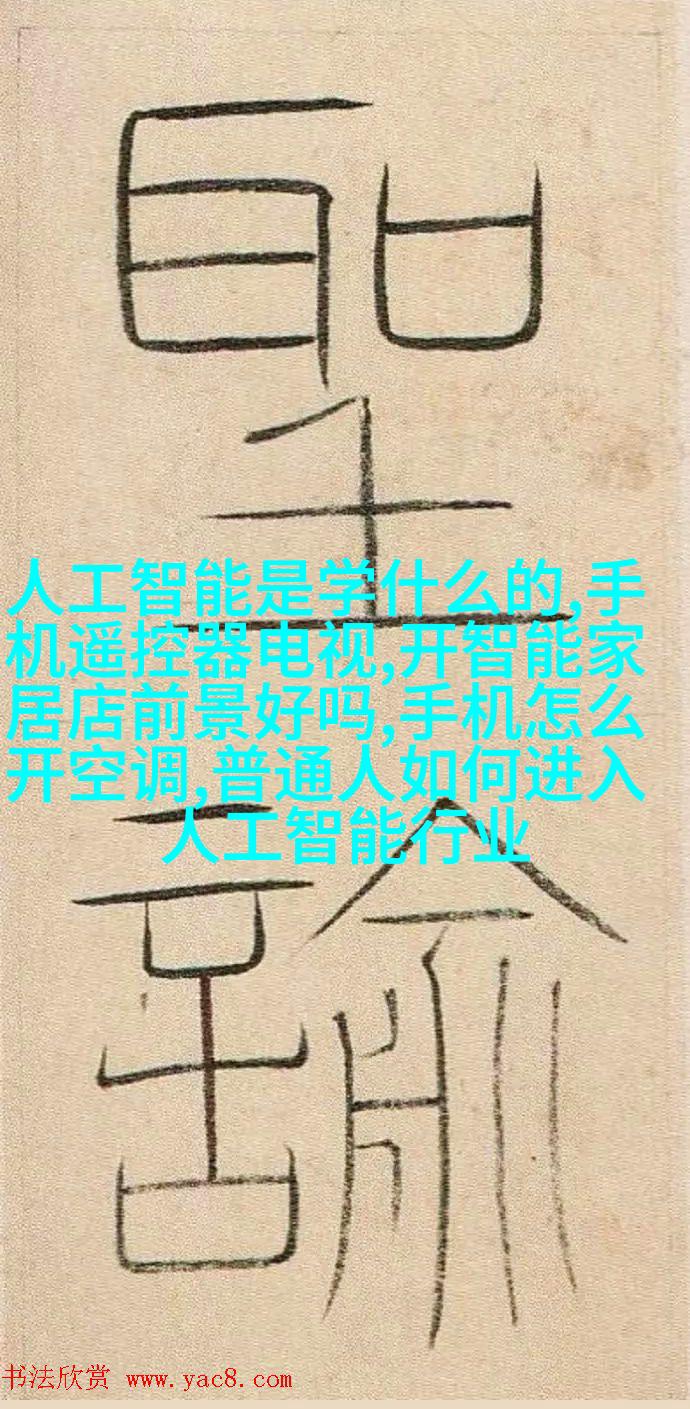 聖
諭
人工智能是学什么的,手
机遥控器电视,开智能家
居店前景好吗,手机怎么
开空调,普通人如何进入
人工智能行业
书法欣赏 www.yac8.com